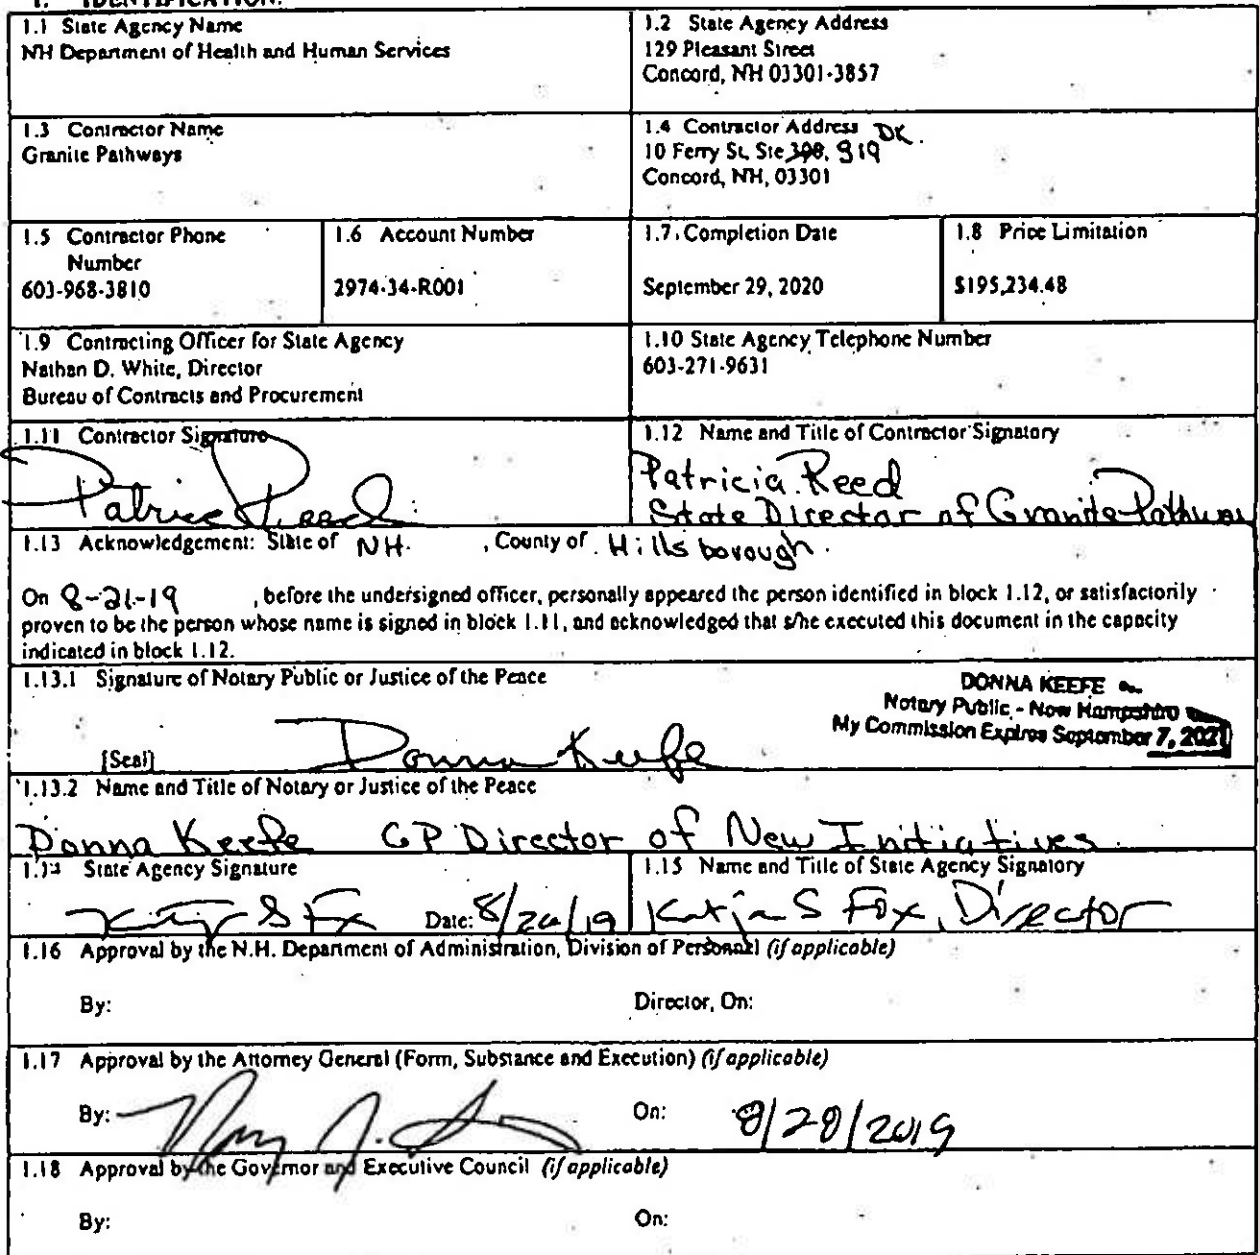 1. IDENTIFICATION.
1.1 State Agency Name
NH Department of Health and Human Services
1.2 State Agency Address
129 Pleasant Street
Concord, NH 03301-3857
1.3 Contractor Name
Granite Pathways
1.4 Contractor Address DK.
10 Ferry St, Ste 308, 319
Concord, NH, 03301
1.5 Contractor Phone
Number
603-968-3810
1.6 Account Number
2974-34-R001
1.7 Completion Date
September 29, 2020
1.8 Price Limitation
$195,234.48
1.9 Contracting Officer for State Agency
Nathan D. White, Director
Bureau of Contracts and Procurement
1.10 State Agency Telephone Number
603-271-9631
1.11 Contractor Signature
Patricia Reed
1.12 Name and Title of Contractor Signatory
Patricia Reed
State Director of Granite Pathway
1.13 Acknowledgement: State of NH. , County of Hillsborough.
On 8-21-19 , before the undersigned officer, personally appeared the person identified in block 1.12, or satisfactorily
proven to be the person whose name is signed in block 1.11, and acknowledged that s/he executed this document in the capacity
indicated in block 1.12.
1.13.1 Signature of Notary Public or Justice of the Peace
DONNA KEEFE
Notary Public - New Hampshire
My Commission Expires September 7, 2021
[Seal] Donna Keefe
1.13.2 Name and Title of Notary or Justice of the Peace
Donna Keefe GP Director of New Initiatives
State Agency Signature
Date: 8/26/19
1.15 Name and Title of State Agency Signatory
Katja S Fox, Director
1.16 Approval by the N.H. Department of Administration, Division of Personnel (if applicable)
By: Director, On:
1.17 Approval by the Attorney General (Form, Substance and Execution) (if applicable)
By: On: 8/28/2019
1.18 Approval by the Governor and Executive Council (if applicable)
By: On: